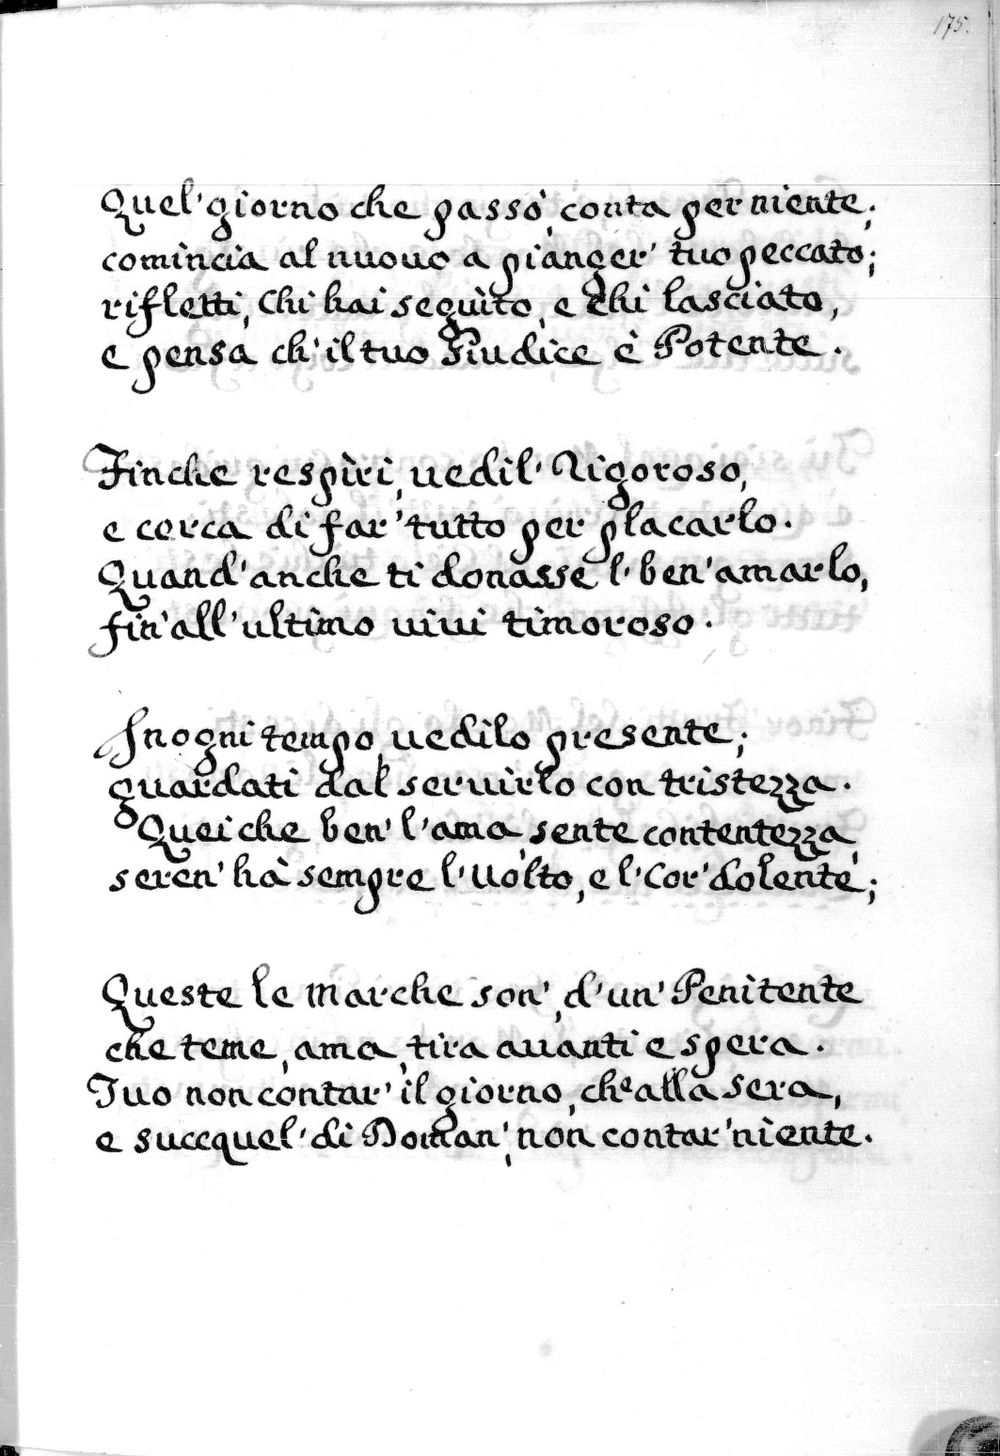 175.
Quel' giorno che passò, conta per niente;
comincia al nuovo a pianger' tuo peccato;
rifletti, Chi hai seguito, e Chi lasciato,
e pensa ch' il tuo Giudice è Potente.
Finche respiri, uedil' Rigoroso,
e cerca di far' tutto per placarlo.
Quand' anche ti donasse l' ben' amarlo,
fin' all' ultimo uiui timoroso.
In ogni tempo uedilo presente;
guardati dal seruirlo con tristezza.
Quei che ben' l' ama, sente contentezza,
seren' hà sempre l' Uolto, e l' Cor' dolente;
Queste le marche son', d' un' Penitente
che teme, ama, tira auanti e spera.
Tuo non contar' il giorno, che alla sera,
e quel' di Doman', non contar' niente.